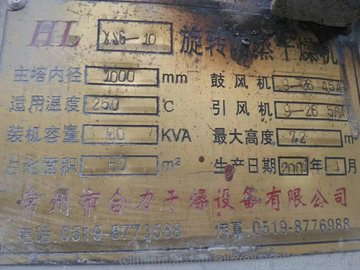 HL XSG-10 旋转闪蒸干燥机
主塔内径 1000 mm 鼓风机 9-26 4.5A
适用温度 250 ℃ 引风机 9-26 5.6A
装机容量 60 KVA 最大高度 7.2 m
占地面积 50 m² 生产日期 200 年 月
常州市合力干燥设备有限公司
电话: 0519-8773688 传真: 0519-8776988